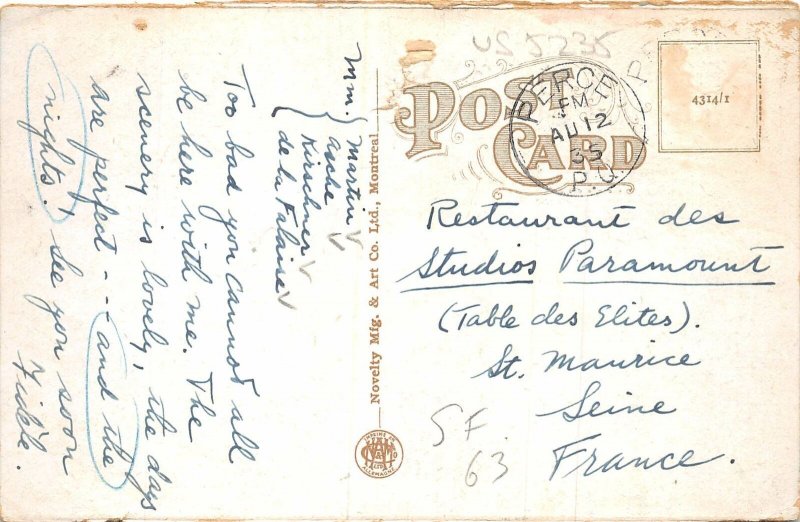 Mm. { Martin
Asche
Kirschner
de la Falaise
Too bad you cannot all
be here with me. The
scenery is lovely, the days
are perfect -- and the
nights! See you soon
Fidèle.
Novelty Mfg. & Art Co. Ltd., Montreal.
US 5235
POST
CARD
PERCE
PM
AU 12
35
P.Q.
4314/1
Restaurant des
Studios Paramount
(Table des Elites).
St. Maurice
Seine
France.
SF
63